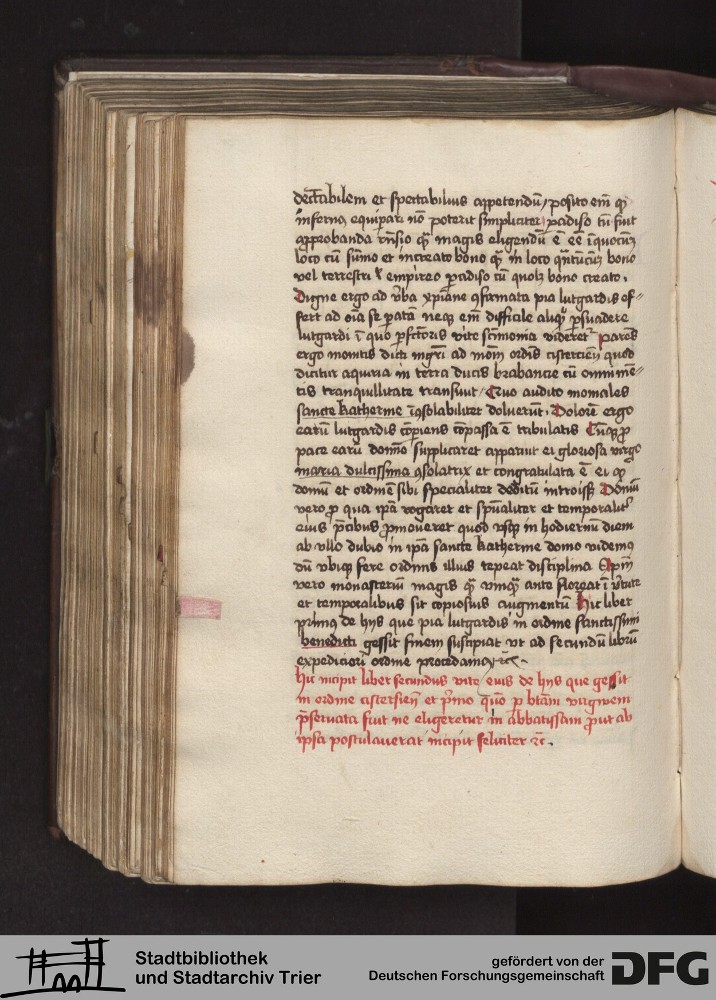 dectabilem et spectabilius appetendū / posito em̄ qꝫ
inferno equipari nō poterit simpliciter padiso tn̄ fuit
approbanda rn̄sio qꝫ magis eligendū ē eē ī quocūqꝫ
loco cū sūmo et increato bono qꝫ in loco qn̄tūcūqꝫ bono
vel terrestri l empireo padiso cū quolꝫ bono creato .
Digne ergo ad v̄ba xp̄iane ꝯfirmata pia lutgardis of=
fert ad oīa se patā neqꝫ em̄ difficile aliqͥ p̱suadere
lutgardi ī quo p̱fctōris vite sctīmonia videretᷣ pares
ergo monitis dicti mgrī ad monī ordīs cistercien̄ quod
dicitur aquiria in terra ducis brabancie cū omni mē=
tis tranquillitate transiuit / Quo audito moniales
sancte katherine īꝯsolabiliter doluerūt . Dolorē ergo
earū lutgardis cōpiens cōpassa ē tribulatis Cūqꝫ p
pace earū domīo supplicaret apparuit ei gloriosa virgo
maria dulcissima ꝯsolatrix et congratulata ē ei qꝫ
domū et ordinē sibi specialiter debitū introissꝫ Domū
vero p qua ip̄am rogaret et sp̄ualiter et temporalit᷑
eius p̄cibus p̱moueret quod vsqꝫ in hodiernū diem
ab vllo dubio in ip̄a sancte katherine domo videmꝰ
dū vbiqꝫ fere ordinis illius tepeat disciplina Ip̄m
vero monasteriū magis qꝫ vnqꝫ ante floreat ī v̄tute
et temporalibus sit copiosius augmentū Hic liber
primꝰ de hijs que pia lutgardis in ordine sanctissimi
benedicti gessit finem suscipiat vt ad secundū librū
expediciori ordine procedamꝰ ꝛc .
Hic incipit liber secundus vite eius de hijs que gessit
in ordine cistersien̄ et p̄mo quō p btam virginem
p̄seruata fuit ne eligeretur in abbatissam put ab
ipsa postulauerat incipit feliciter ꝛc .
Stadtbibliothek
und Stadtarchiv Trier
gefördert von der
Deutschen Forschungsgemeinschaft
DFG